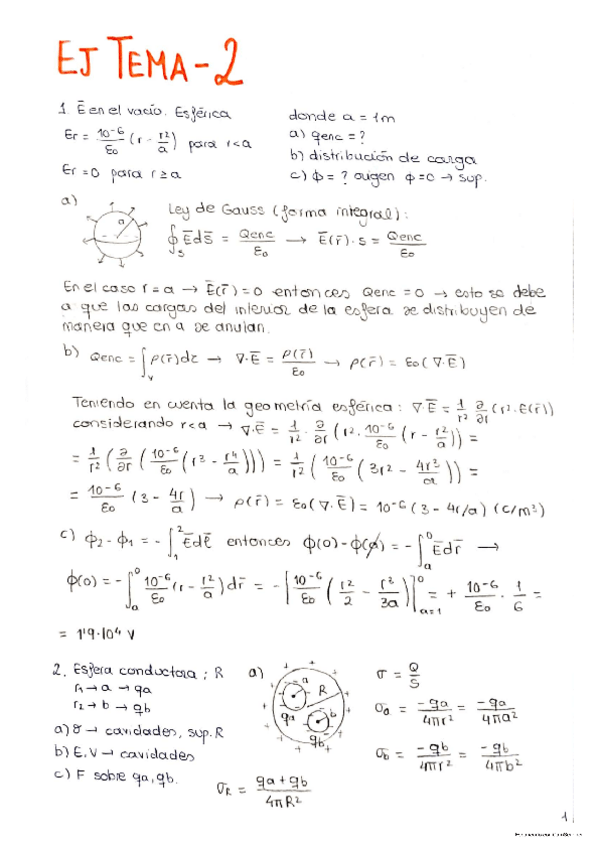 EJ TEMA-2
1. Ē en el vacío. Esférica
Er = 10⁻⁶/ε₀ (r - r²/a) para r<a
Er = 0 para r ≥ a
donde a = 1m
a) qenc = ?
b) distribución de carga
c) ϕ = ? augen ϕ=0 → sup.
a)
a
Ley de Gauss (forma integral):
∮s Ēds̄ = Qenc/ε₀ → Ē(r̄)·s = Qenc/ε₀
En el caso r=a → Ē(r̄)=0 entonces Qenc = 0 → esto se debe
a que las cargas del interior de la esfera se distribuyen de
manera que en a se anulan.
b) Qenc = ∫v ρ(r̄)dτ → ∇·Ē = ρ(r̄)/ε₀ → ρ(r̄) = ε₀(∇·Ē)
Teniendo en cuenta la geometría esférica: ∇·Ē = 1/r² ∂/∂r (r²·E(r̄))
considerando r<a → ∇·Ē = 1/r² · ∂/∂r (r²· 10⁻⁶/ε₀ (r - r²/a)) =
= 1/r² (∂/∂r (10⁻⁶/ε₀ (r³ - r⁴/a))) = 1/r² (10⁻⁶/ε₀ (3r² - 4r³/a)) =
= 10⁻⁶/ε₀ (3 - 4r/a) → ρ(r̄) = ε₀(∇·Ē) = 10⁻⁶ (3 - 4r/a) (C/m³)
c) ϕ₂ - ϕ₁ = -∫₁² Ēdl̄ entonces ϕ(0) - ϕ(a) = -∫ₐ⁰ Ēdr̄ →
ϕ(0) = -∫ₐ⁰ 10⁻⁶/ε₀ (r - r²/a) dr̄ = -[10⁻⁶/ε₀ (r²/2 - r³/3a)]⁰ₐ₌₁ = + 10⁻⁶/ε₀ · 1/6 =
= 1'9·10⁴ V
2. Esfera conductora: R
r₁ → a → qa
r₂ → b → qb
a) σ → cavidades, sup. R
b) E, V → cavidades
c) F sobre qa, qb.
a)
a
R
qa
b
qb
σR = (qa+qb)/4πR²
σ = Q/S
σa = -qa/4πr² = -qa/4πa²
σb = -qb/4πr² = -qb/4πb²
1